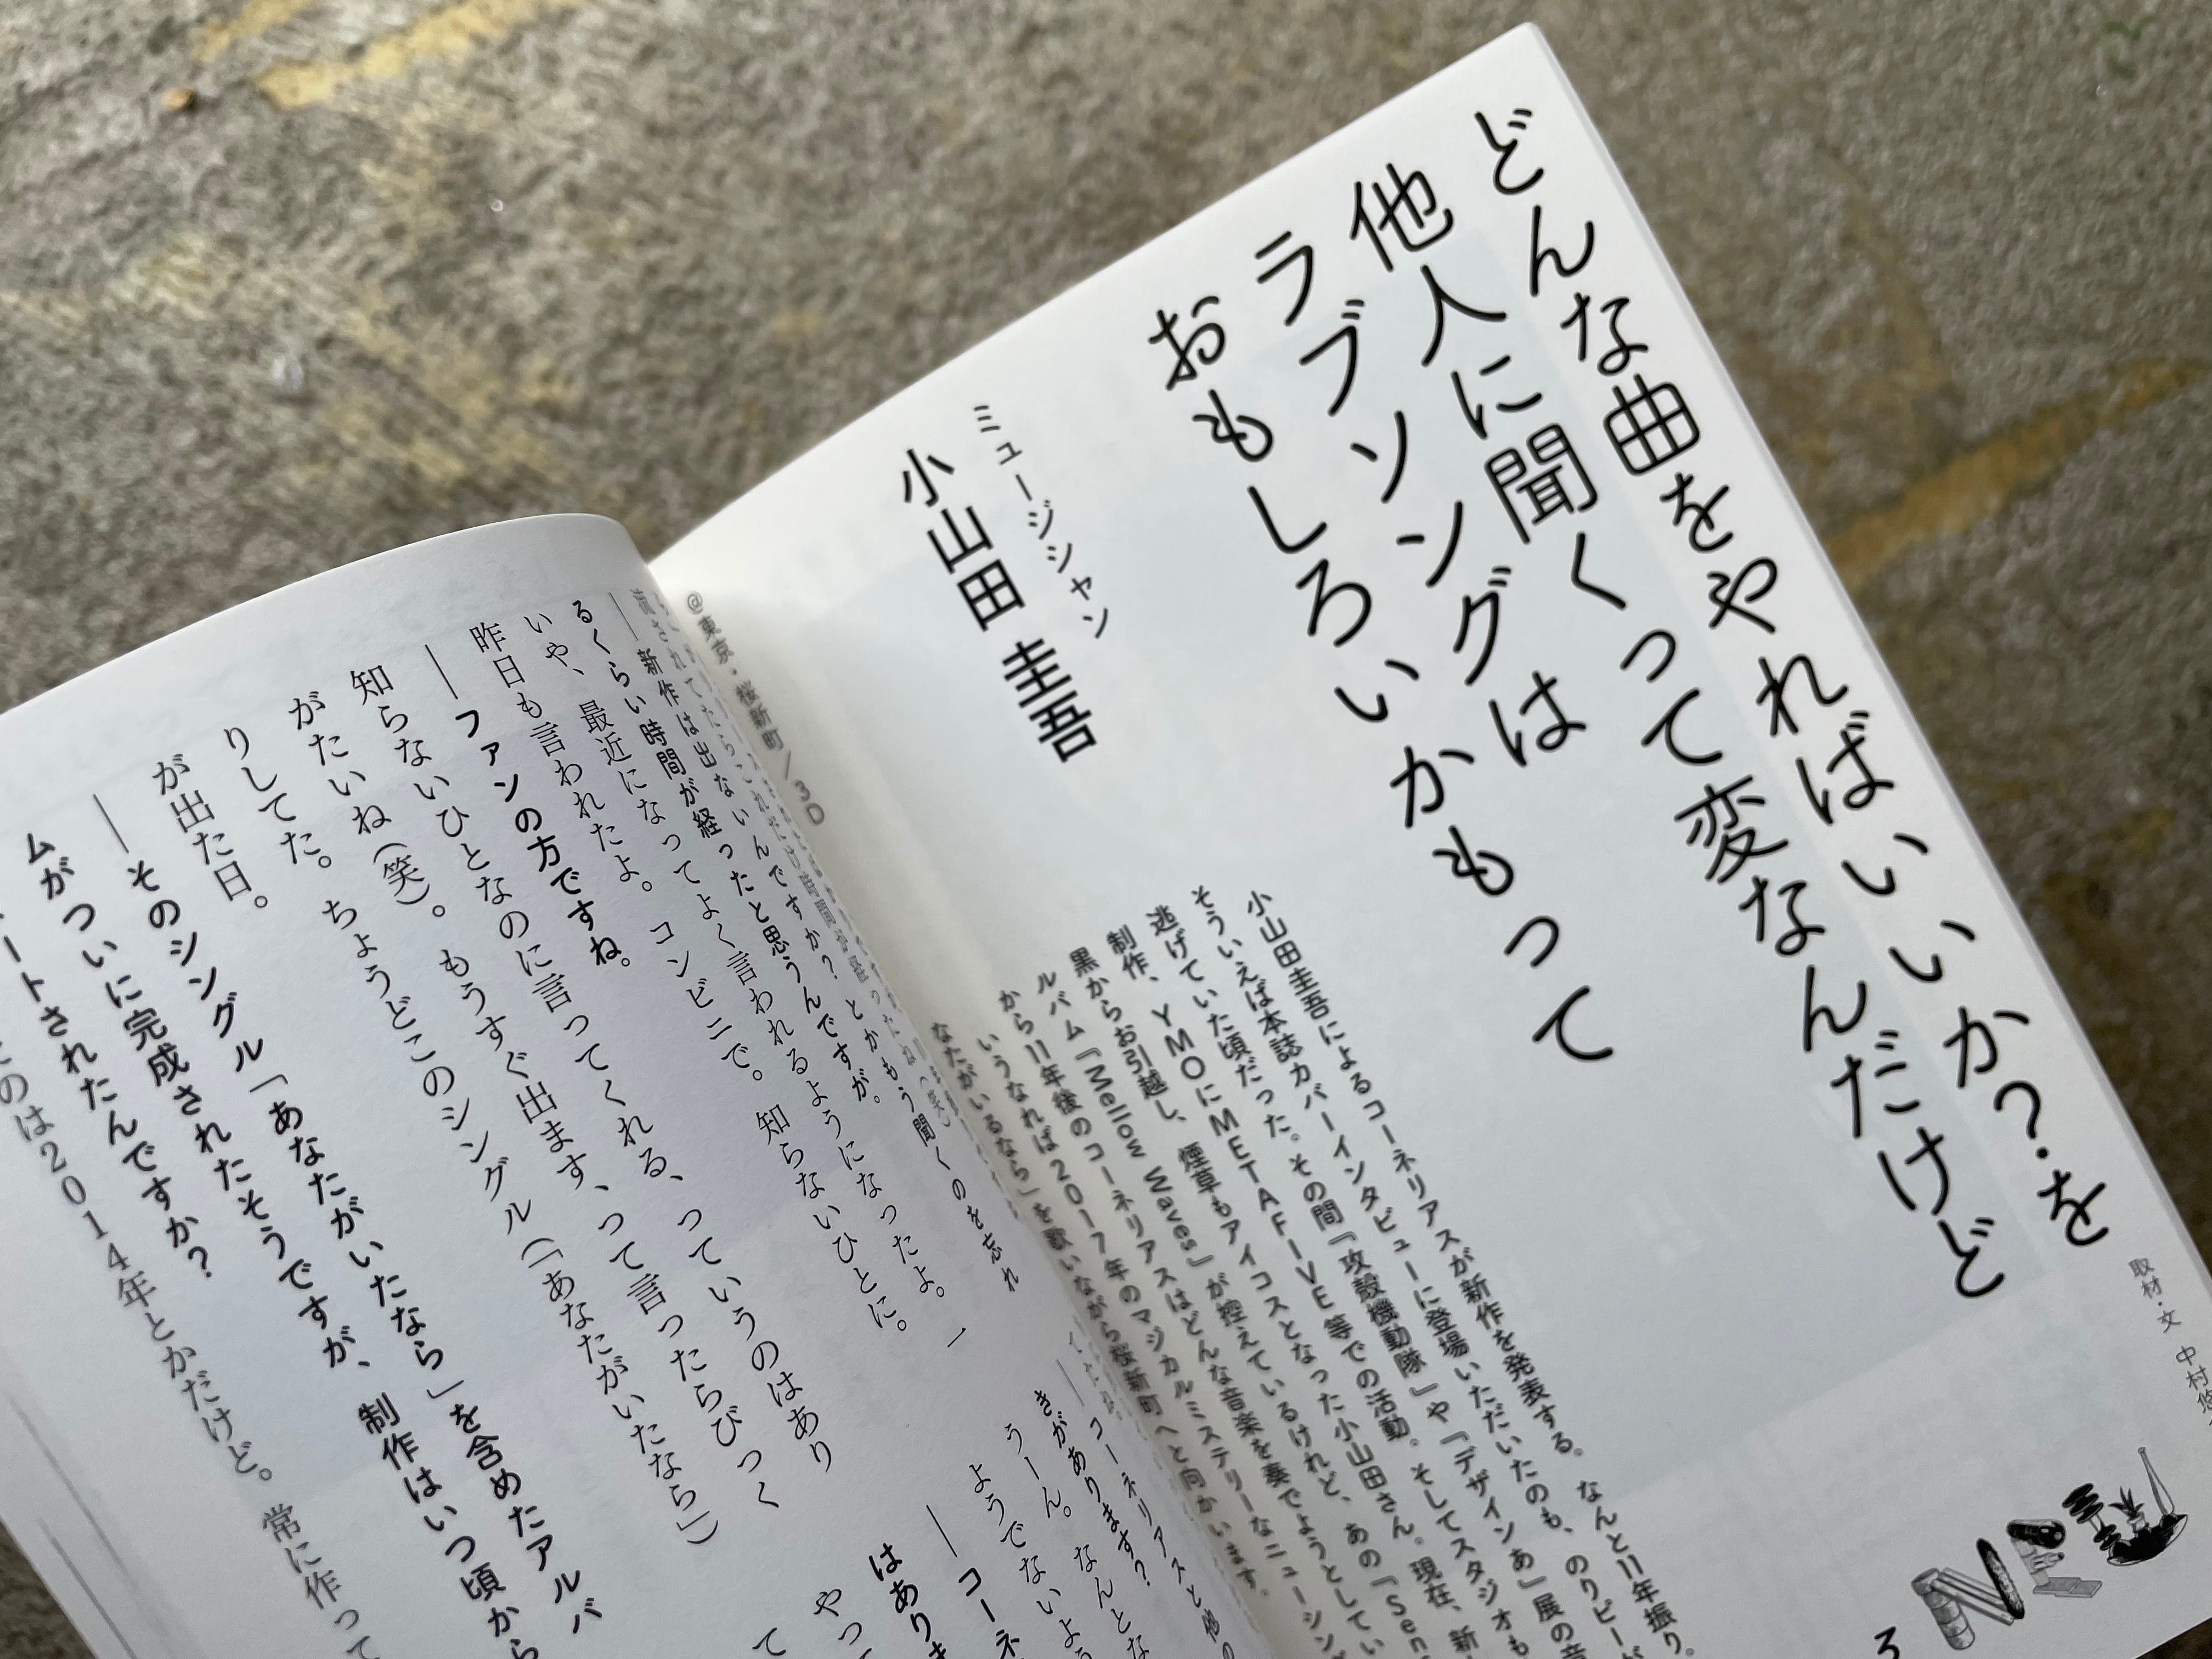 どんな曲をやればいいか?を
他人に聞くって変なんだけど
ラブソングは
おもしろいかもって
ミュージシャン
小山田 圭吾
@東京・桜新町/3D
取材・文 中村悠
小山田圭吾によるコーネリアスが新作を発表する。なんと11年振り。
そういえば本誌カバーインタビューに登場いただいたのも、のりピーが
逃げていた頃だった。その間『攻殻機動隊』や『デザインあ』展の音
制作、YMOにMETAFIVE等での活動。そしてスタジオも
黒からお引越し、煙草もアイコスとなった小山田さん。現在、新
ルバム『Mellow Waves』が控えているけれど、あの『Sen
から11年後のコーネリアスはどんな音楽を奏でようとしてい
いうなれば2017年のマジカルミステリーなニューシング
なたがいるなら」を歌いながら桜新町へと向かいます。
NEU
3
―新作は出ないんですか?とかもう聞くのを忘れ
るくらい時間が経ったと思うんですが。
いや、最近になってよく言われるようになったよ。
昨日も言われたよ。コンビニで。知らないひとに。
―ファンの方ですね。
知らないひとなのに言ってくれる、っていうのはあり
がたいね(笑)。もうすぐ出ます、って言ったらびっく
りしてた。ちょうどこのシングル(「あなたがいたなら」)
が出た日。
―そのシングル「あなたがいたなら」を含めたアルバ
ムがついに完成されたそうですが、制作はいつ頃から
ートされたんですか?
のは2014年とかだけど。常に作って
―コーネリアスと他の
きがあります?
うーん。なんとな
ようでないよう
―コーネ
はありま
やって
て